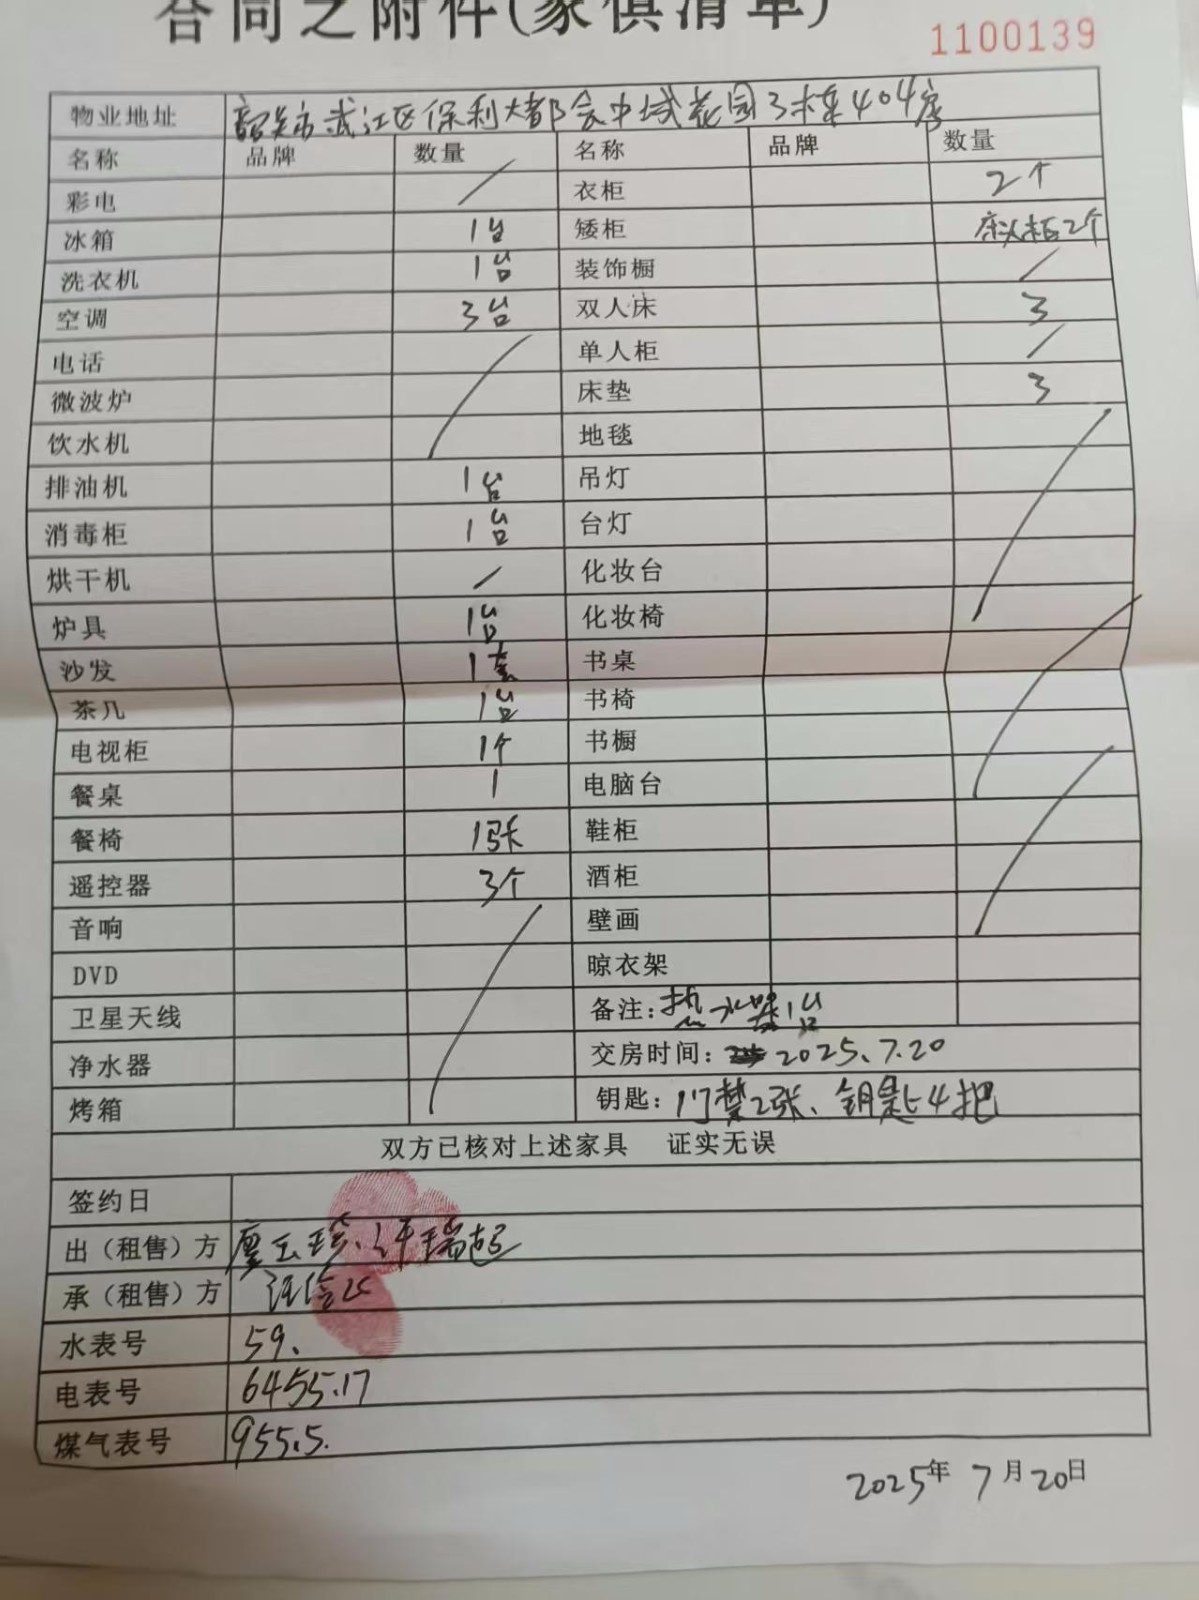 合同之附件(家俱清单)
1100139
物业地址 韶关市武江区保利大都会中域花园3栋404房
名称 品牌 数量 名称 品牌 数量
彩电 / 衣柜 2个
冰箱 1台 矮柜 床头柜2个
洗衣机 1台 装饰橱 /
空调 3台 双人床 3
电话 单人柜 /
微波炉 床垫 3
饮水机 地毯
排油机 1台 吊灯
消毒柜 1台 台灯
烘干机 / 化妆台
炉具 1台 化妆椅
沙发 1套 书桌
茶几 1台 书椅
电视柜 1个 书橱
餐桌 1 电脑台
餐椅 1张 鞋柜
遥控器 3个 酒柜
音响 壁画
DVD 晾衣架
卫星天线 备注:热水器1台
净水器 交房时间: 2025.7.20
烤箱 钥匙:门禁2张、钥匙4把
双方已核对上述家具 证实无误
签约日
出(租售)方 廖玉珍、许瑞起
承(租售)方
水表号 59.
电表号 6455.17
煤气表号 955.5.
2025年7月20日